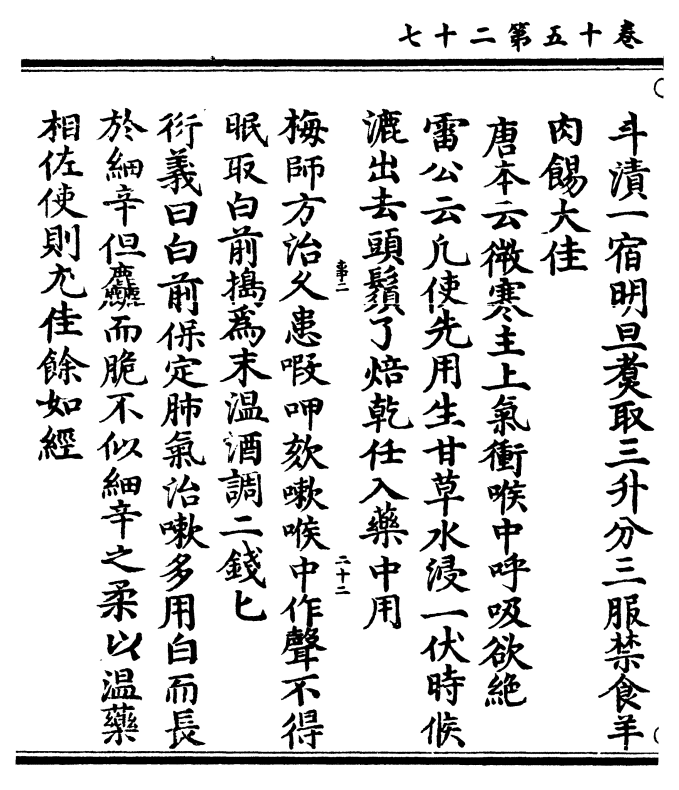 卷十五第二十七
斗漬一宿明旦煑取三升分三服禁食羊
肉餳大佳
唐本云微寒主上氣衝喉中呼吸欲絶
雷公云凢使先用生甘草水浸一伏時候
漉出去頭鬚了焙乾任入藥中用
梅師方治久患㗋呷欬嗽喉中作聲不得
眠取白前搗爲末温酒調二錢匕
衍義曰白前保定肺氣治嗽多用白而長
於細辛但麤而脆不似細辛之柔以温藥
相佐使則尤佳餘如經
二十二